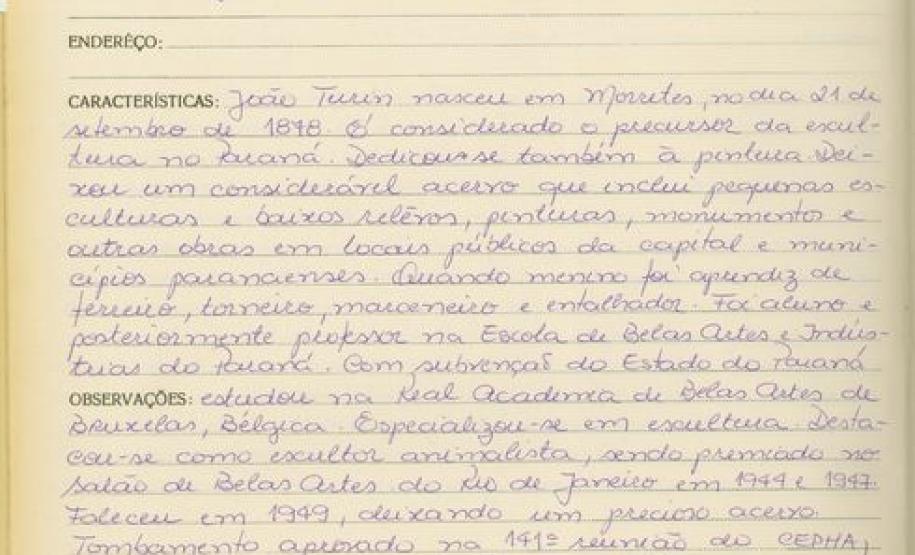 ENDERÊÇO:
CARACTERÍSTICAS: João Turin nasceu em Morretes, no dia 21 de
setembro de 1878. É considerado o precursor da escul-
tura no Paraná. Dedicou-se também à pintura. Dei-
xou um considerável acervo que inclui pequenas es-
culturas e baixos relêvos, pinturas, monumentos e
outras obras em locais públicos da capital e muni-
cípios paranaenses. Quando menino foi aprendiz de
ferreiro, torneiro, marceneiro e entalhador. Foi aluno e
posteriormente professor na Escola de Belas Artes e Indús-
trias do Paraná. Com subvenção do Estado do Paraná
OBSERVAÇÕES: estudou na Real Academia de Belas Artes de
Bruxelas, Bélgica. Especializou-se em escultura. Desta-
cou-se como escultor animalista, sendo premiado no
Salão de Belas Artes do Rio de Janeiro em 1944 e 1947.
Faleceu em 1949, deixando um precioso acervo.
Tombamento aprovado na 141ª reunião do CEPHA,